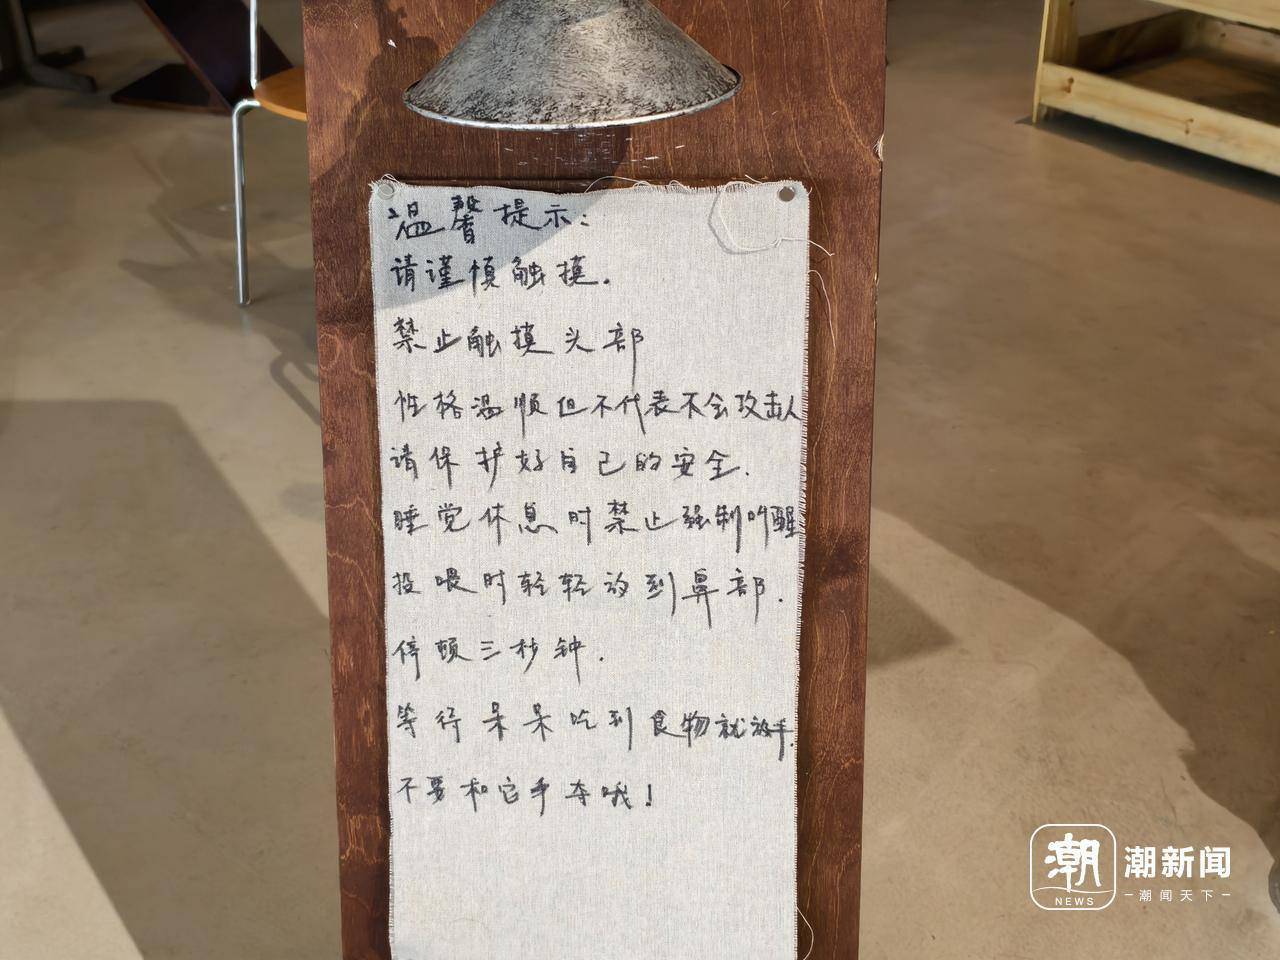 温馨提示：
请谨慎触摸.
禁止触摸头部
性格温顺但不代表不会攻击人
请保护好自己的安全.
睡觉休息时禁止强制叫醒
投喂时轻轻放到鼻部.
停顿三秒钟.
等行呆呆吃到食物就放手.
不要和它手夺哦!
潮
NEWS
潮新闻
潮闻天下